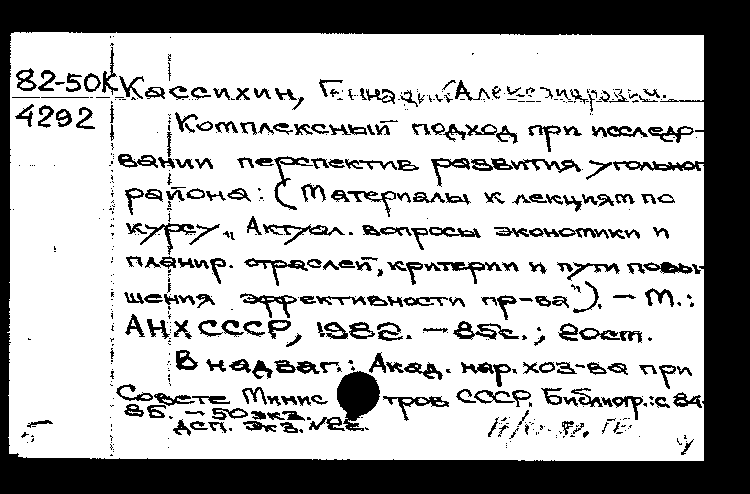 82-50К Кассихин, Геннадий (Александрович.
4292
Комплексный подход при исследо-
вании перспектив развития угольног
района: (Материалы к лекциям по
курсу „Актуал. вопросы экономики и
планир. отраслей, критерии и пути повы-
шения эффективности пр-ва"). — М.:
АНХ СССР, 1982. — 85с.; 20см.
В надзаг.: Акад. нар. хоз-ва при
Совете Минис тров СССР. Библиогр.: с. 84-
85. — 50 экз.
ДСП. Экз. №22.